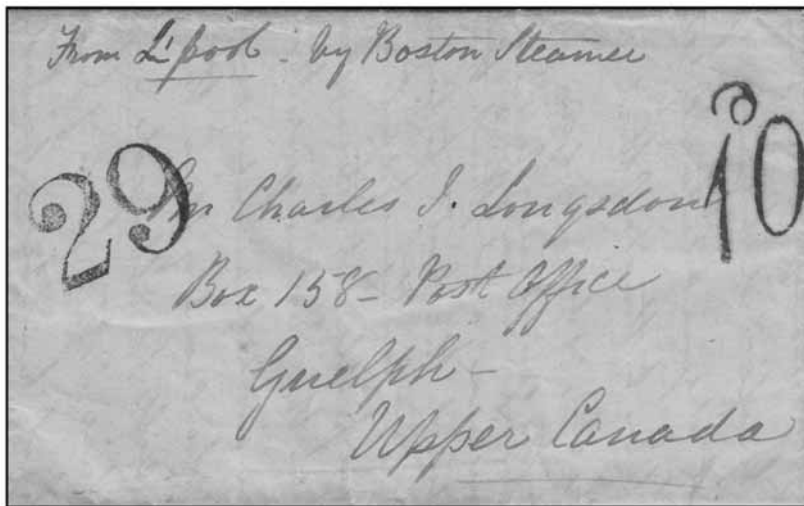 From L'pool - by Boston Steamer
29
10
Mr Charles J. Longsdon
Box 158 - Post Office
Guelph -
Upper Canada